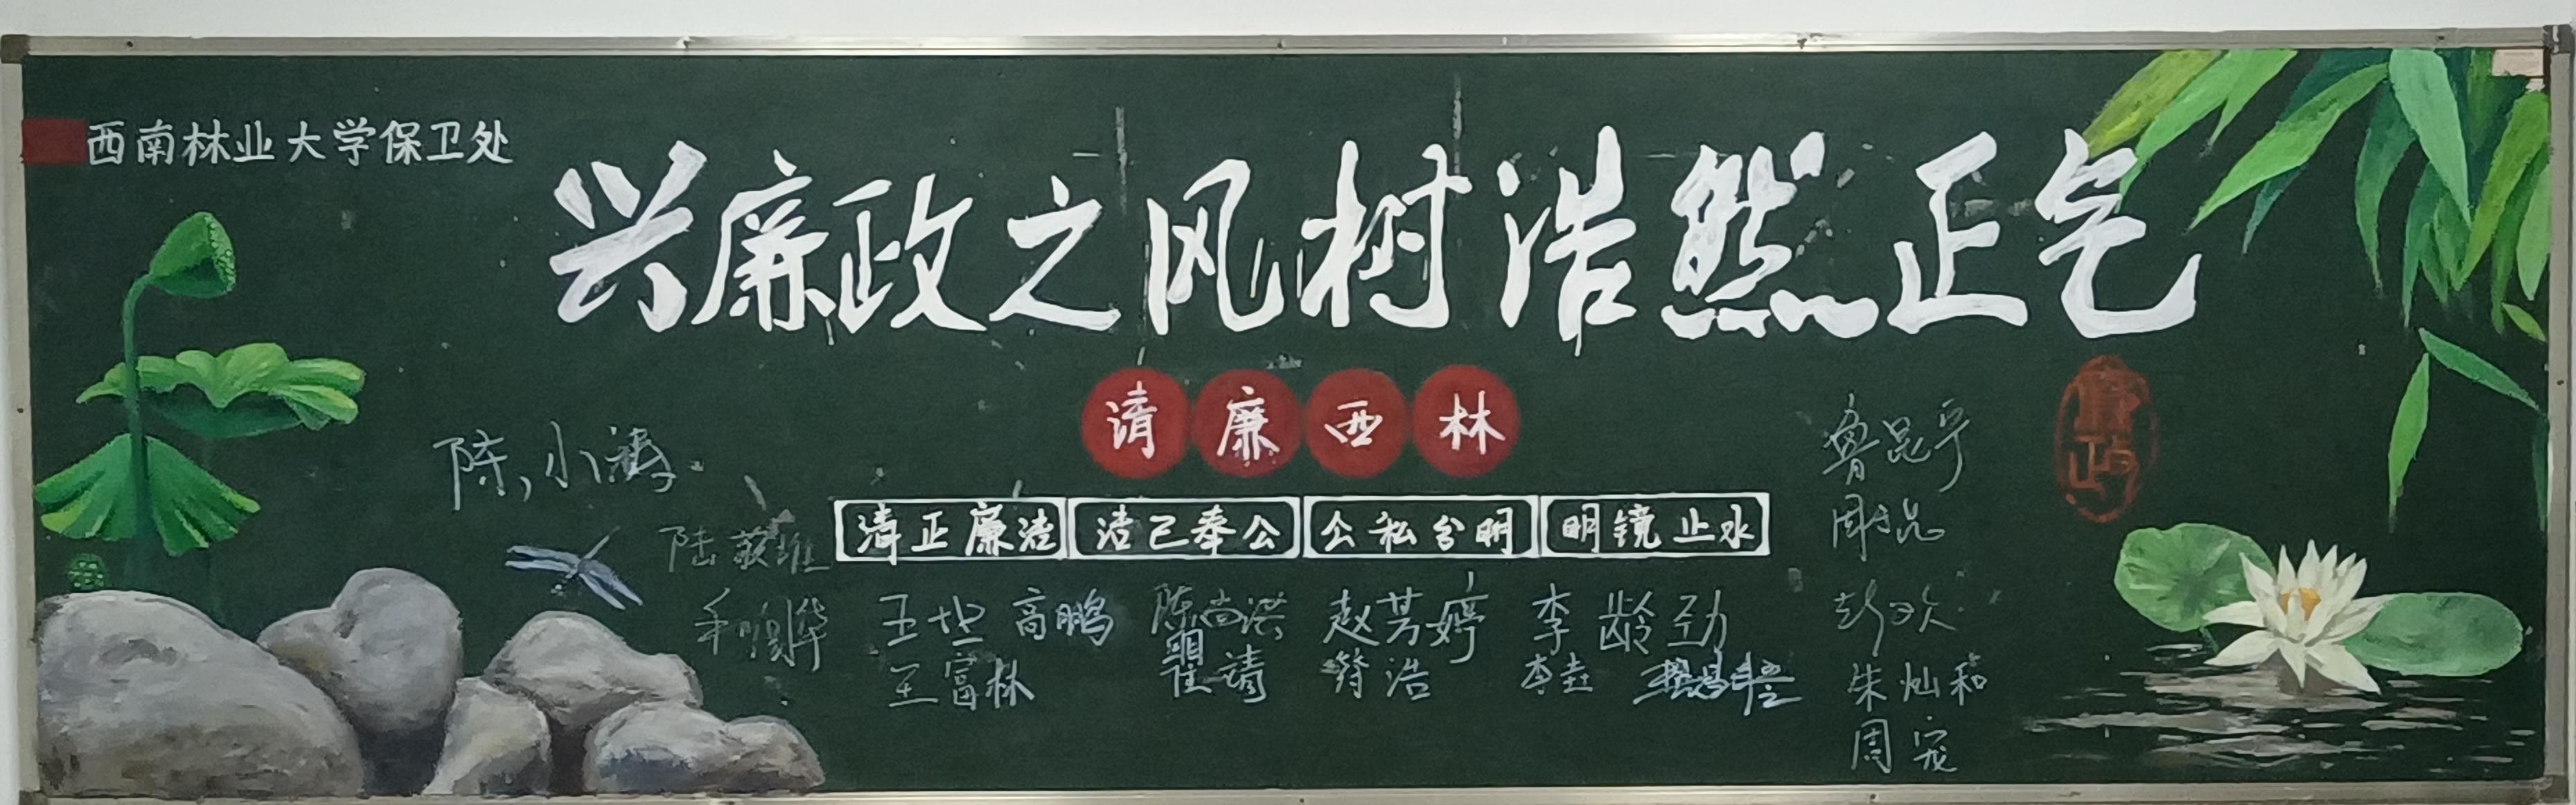 西南林业大学保卫处
兴廉政之风树浩然正气
请廉西林
清正廉洁 洁己奉公 公私分明 明镜止水
陈小涛
鲁昆宁
彭欢
朱灿和
周宠
王坤 高鹏 陈尚洪 赵芳婷 李龄劲
王富林 翟靖 符浩 李奎